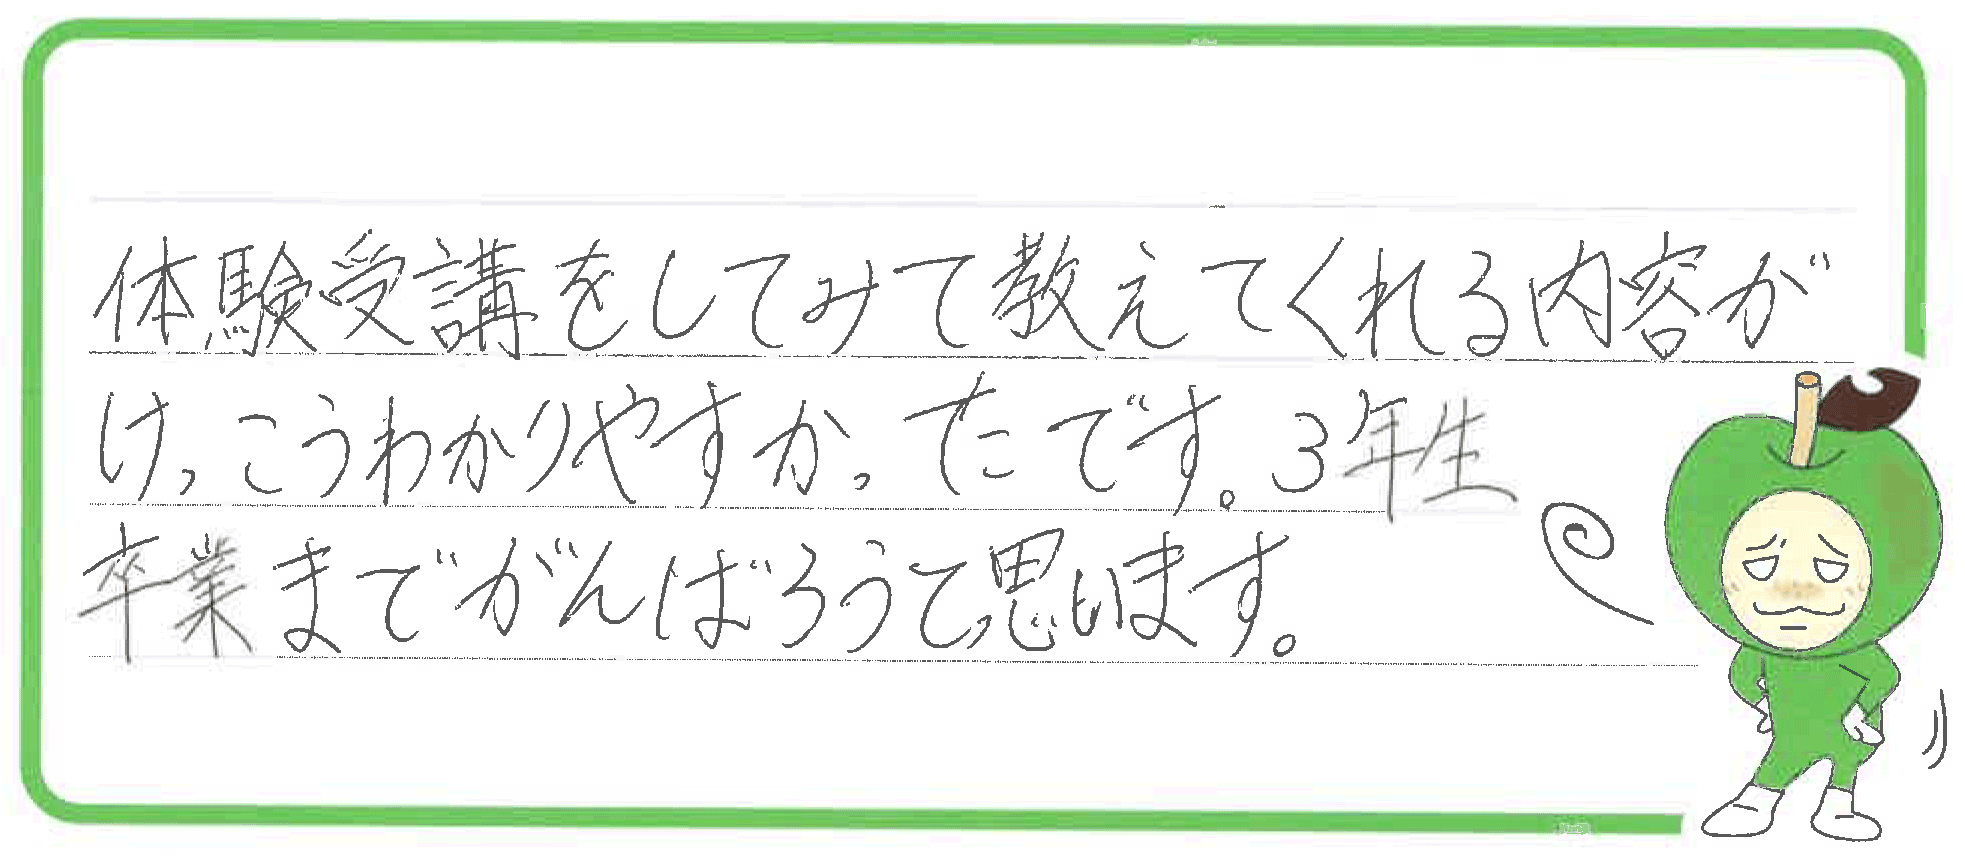 体験受講をしてみて教えてくれる内容が
けっこうわかりやすかったです。3年生
卒業までがんばろうて思います。